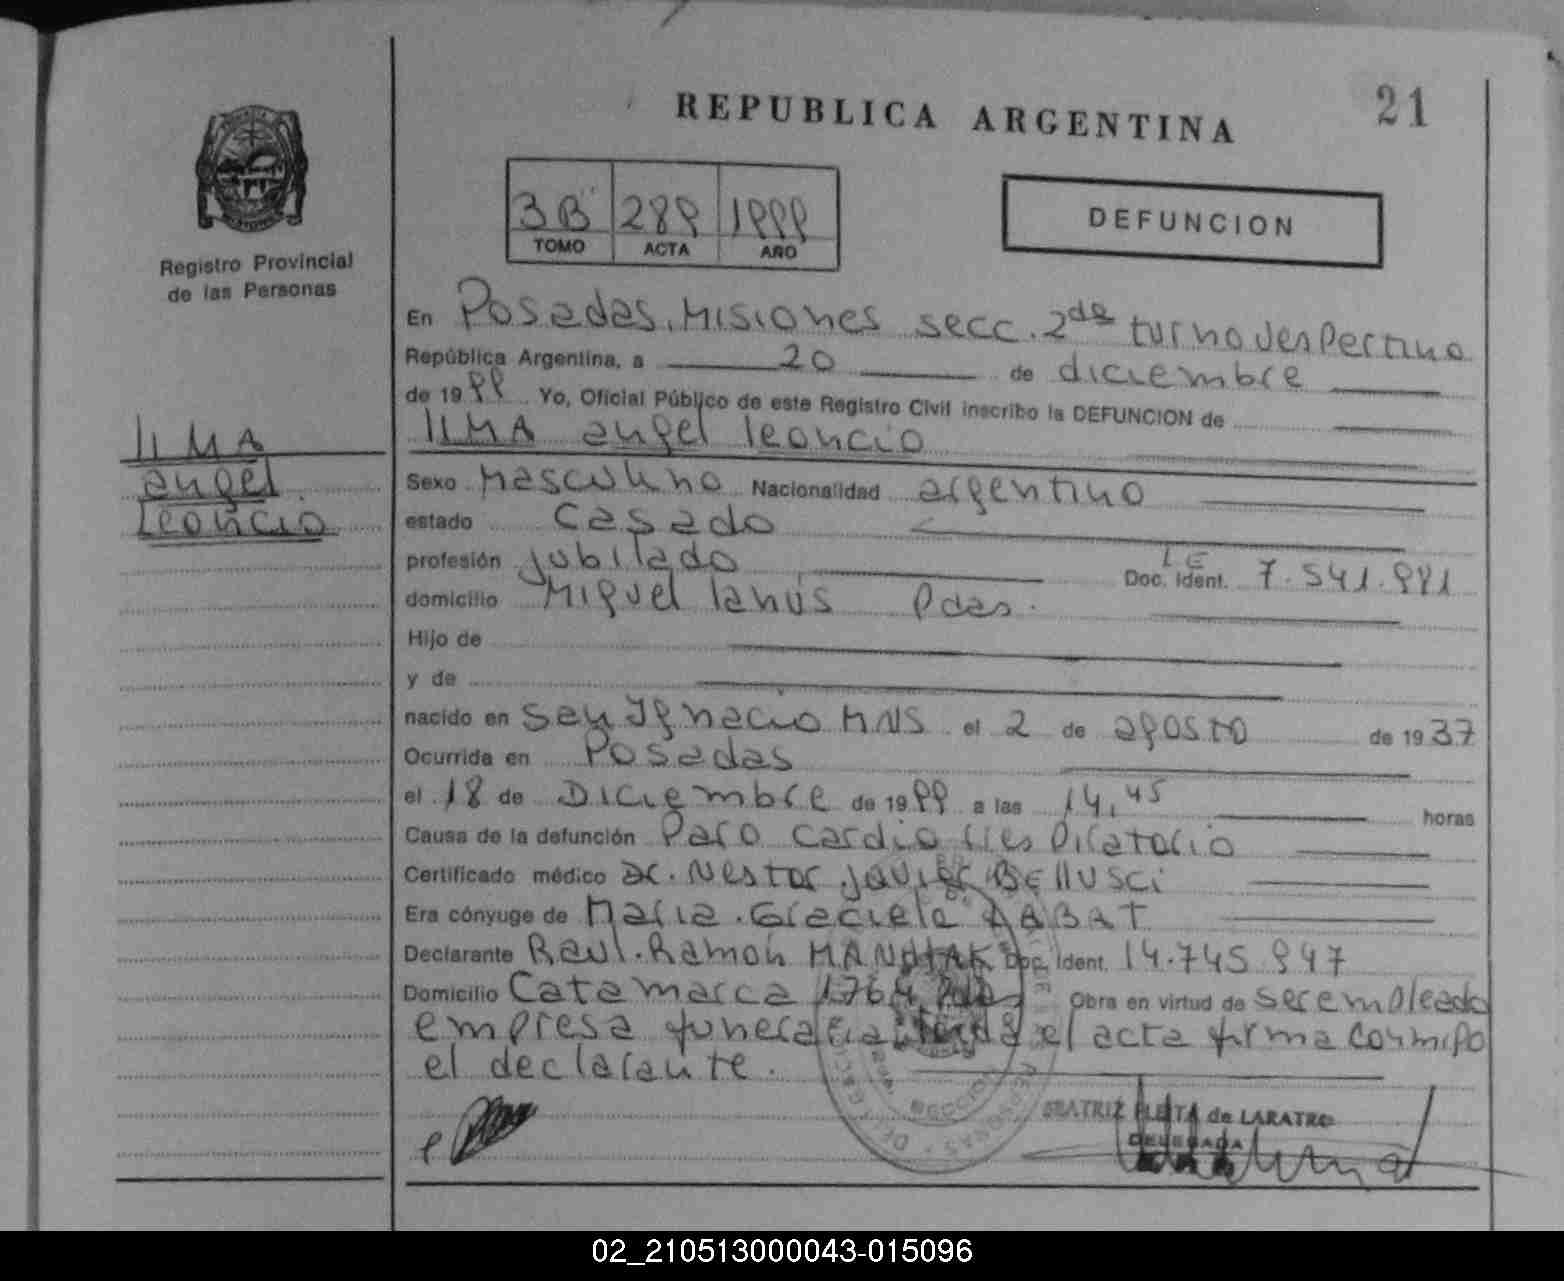 21
REPUBLICA ARGENTINA
3B" 289 1999
TOMO ACTA AÑO
DEFUNCION
Registro Provincial
de las Personas
En Posadas, Misiones secc. 2da turno vespertino
República Argentina, a 20 de diciembre
de 1999 Yo, Oficial Público de este Registro Civil inscribo la DEFUNCION de
LLMA angel leoncio
LLMA
angel
Leoncio
Sexo Masculino Nacionalidad argentino
estado casado
profesión jubilado Doc. Ident. L.E 7.541.991
domicilio Miguel lanus Pdas.
Hijo de
y de
nacido en San Ignacio MNS el 2 de agosto de 1937
Ocurrida en Posadas
el 18 de Diciembre de 1999 a las 14,45 horas
Causa de la defunción Paro cardio rrespiratorio
Certificado médico Dr. Nestor Javier BEllusci
Era cónyuge de Maria Graciela ABBAT
Declarante Raul Ramon Doc. Ident. 14.745.947
Domicilio Catamarca 1764 Obra en virtud de ser empleado
empresa funeraria el acta firma conmigo
el declarante.
BEATRIZ FLEITA de LARATRO
DELEGADA
02_210513000043-015096